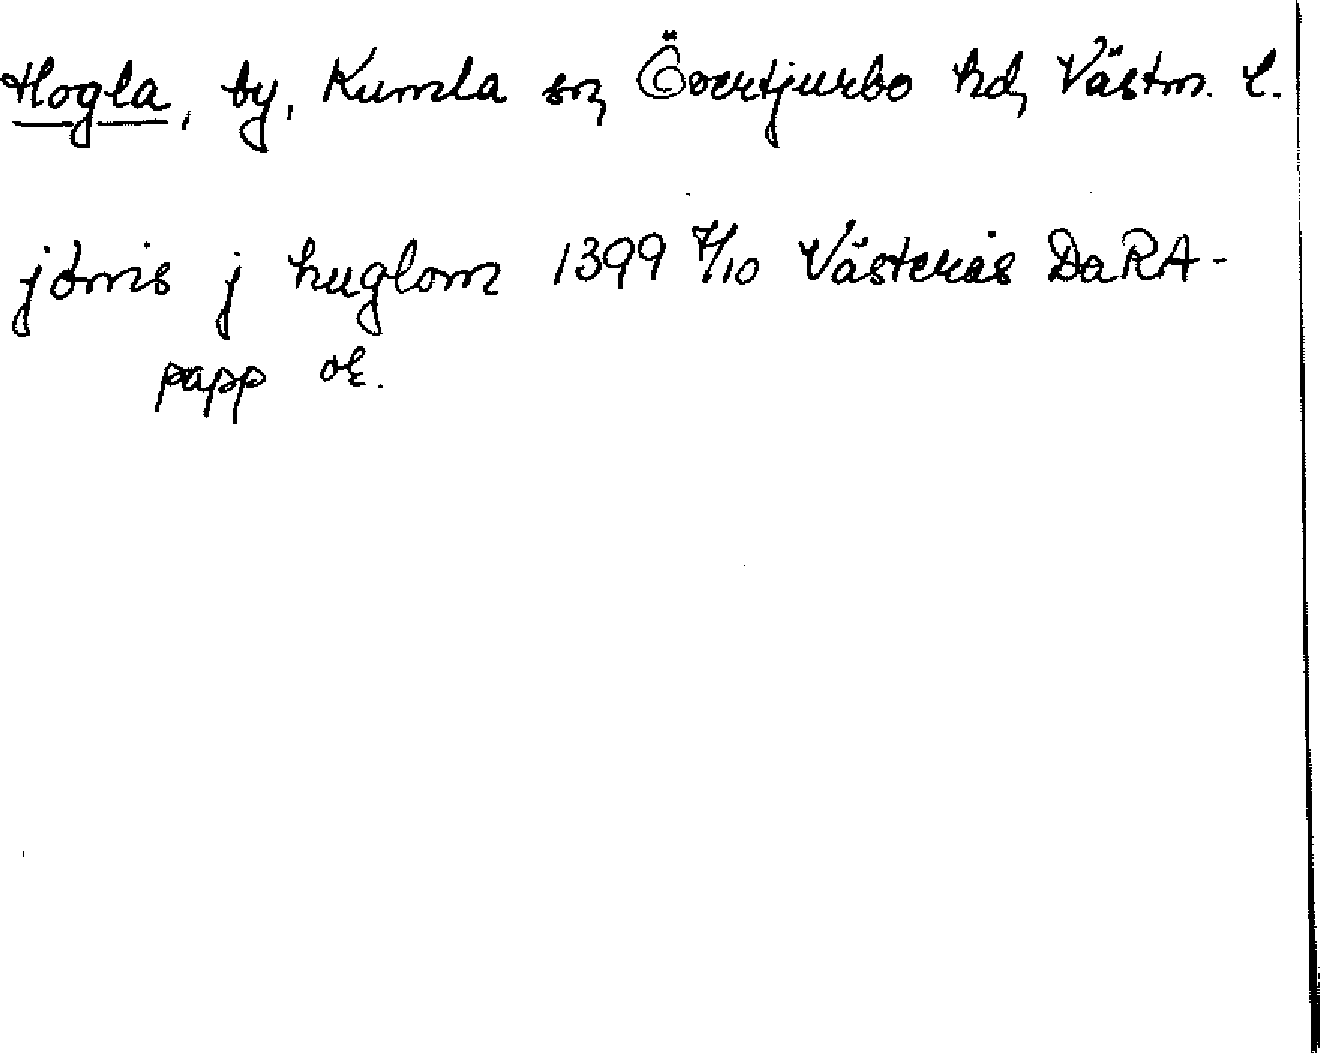 Hogla, by, Kumla sn, Övertjurbo hd, Västm. l.
jönis j huglom 1399 7/10 Västerås DaRA-
papp or.